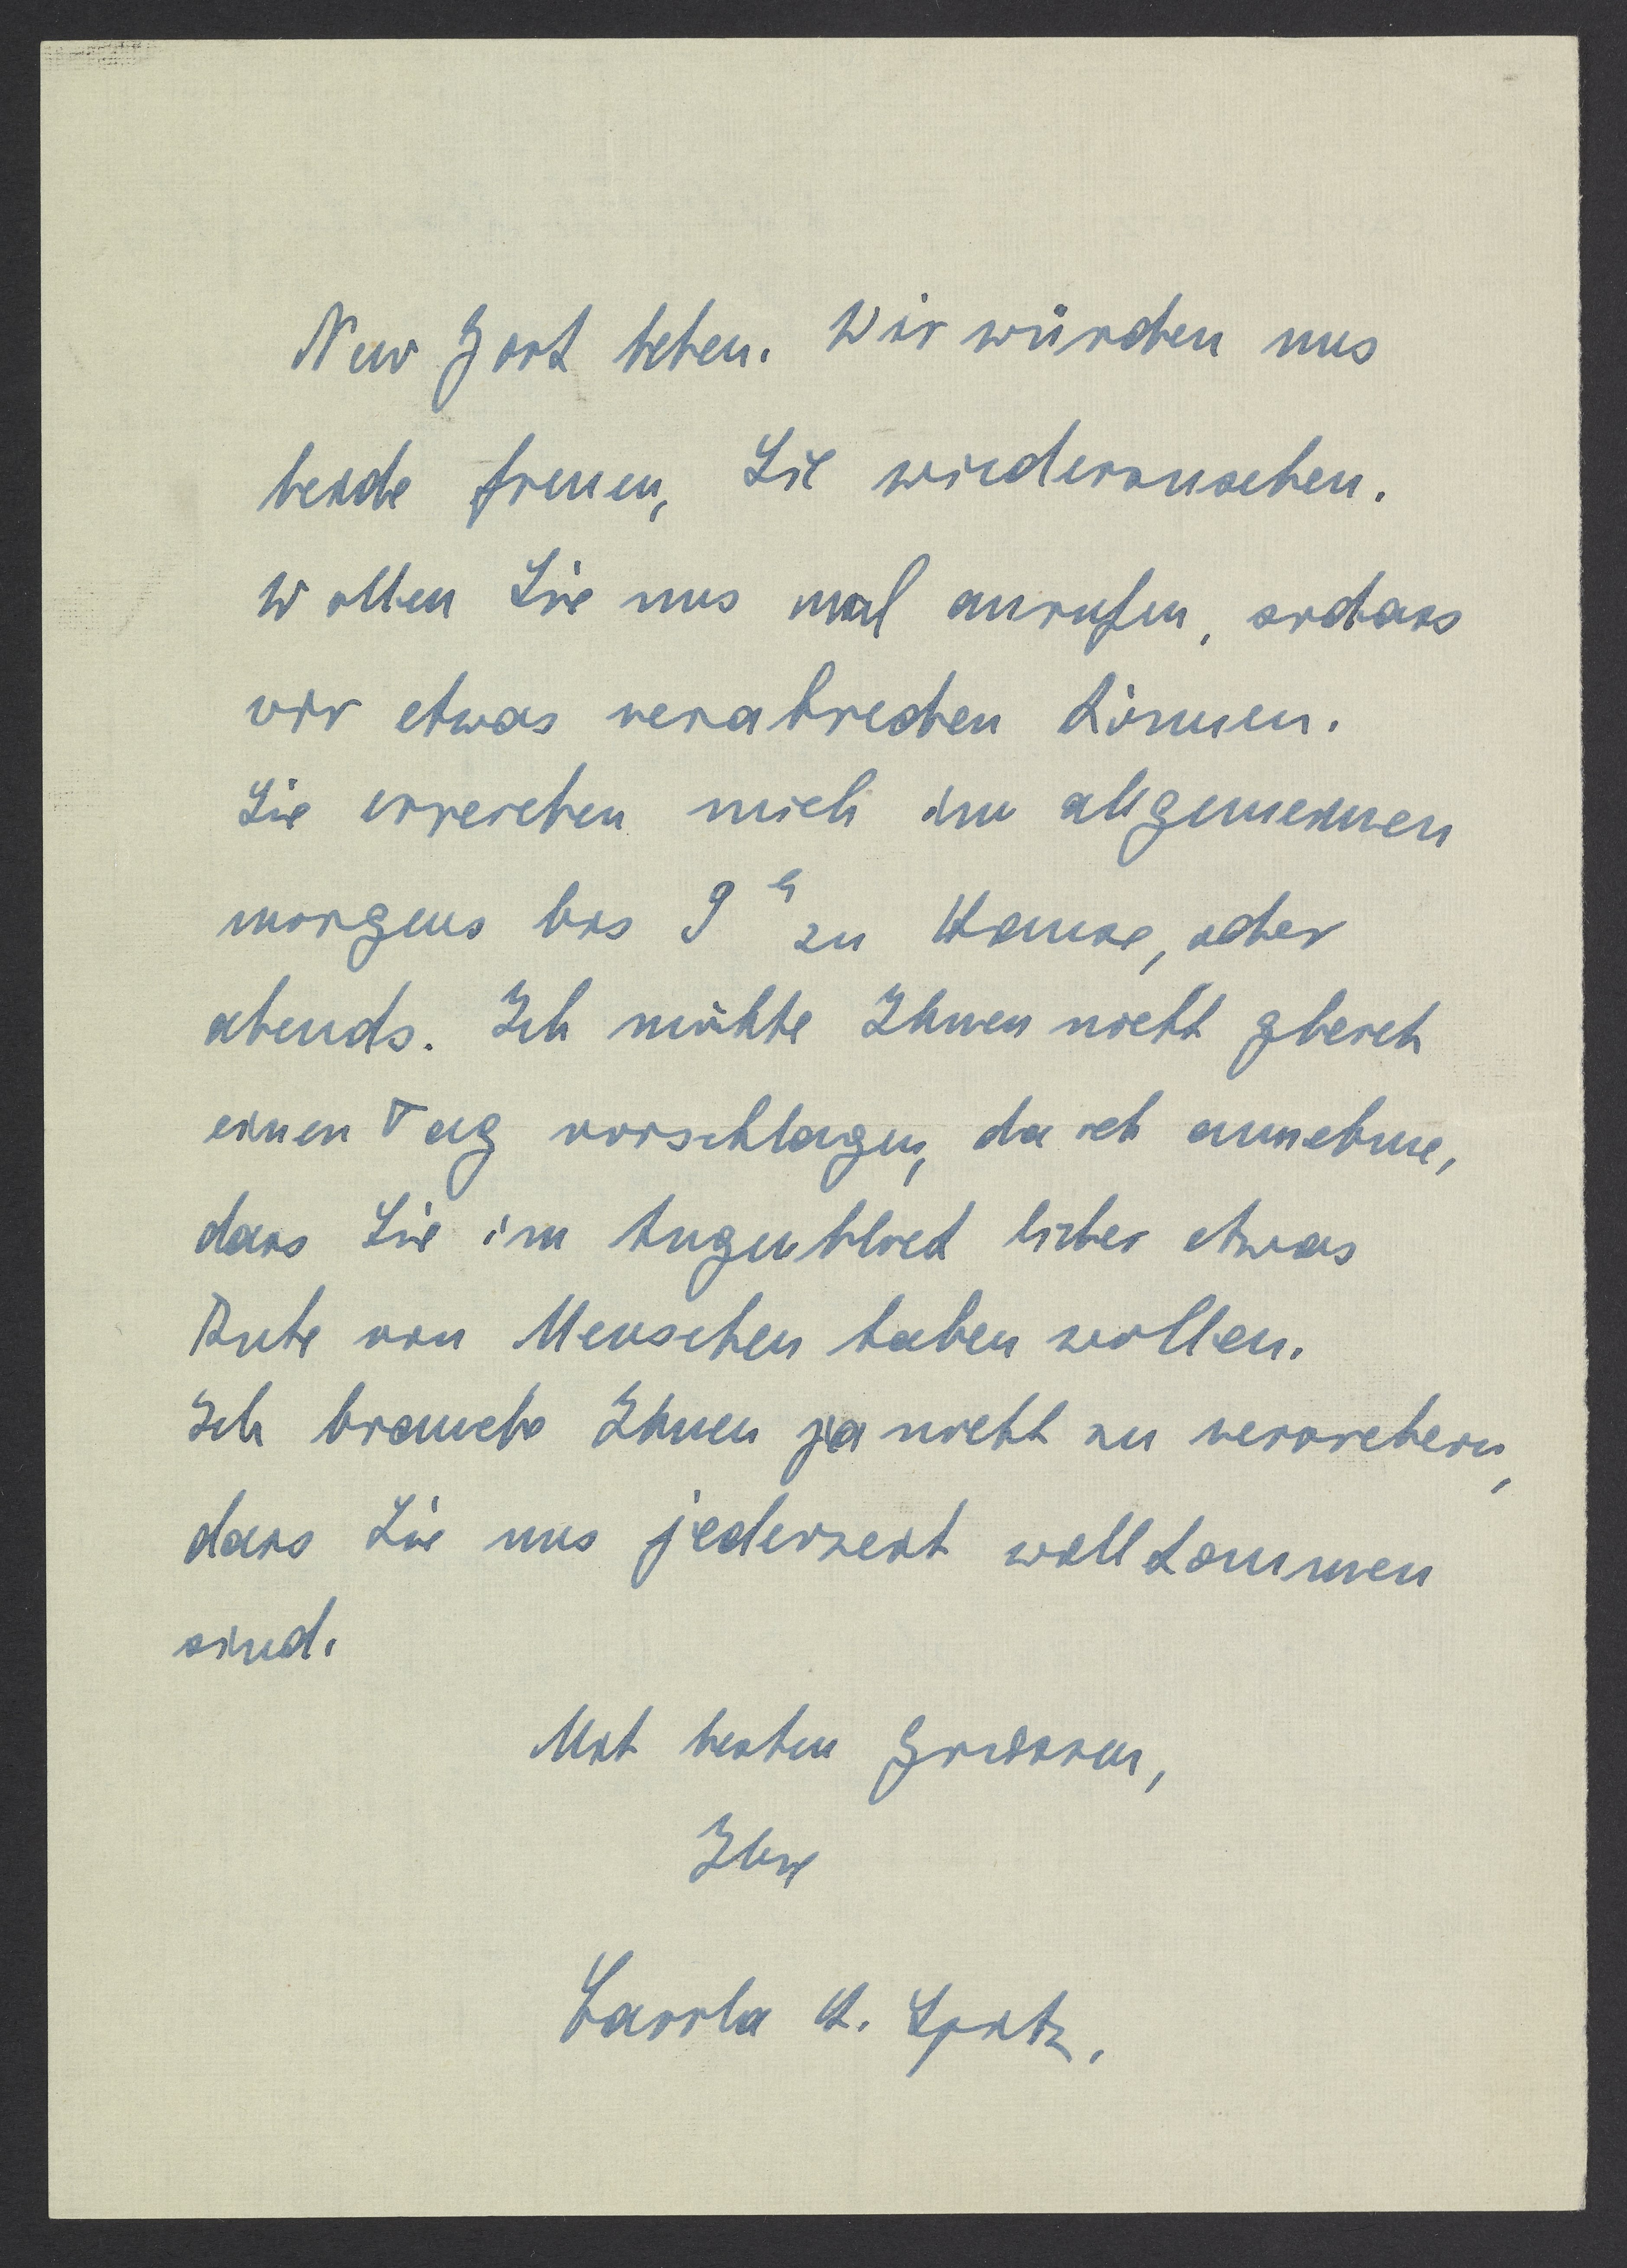 New York leben. Wir würden uns
beide freuen, Sie wiederzusehen.
Wollen Sie uns mal anrufen, sodass
wir etwas verabreden können.
Sie erreichen mich im allgemeinen
morgens bis 9 h zu Hause, oder
abends. Ich möchte Ihnen nicht gleich
einen Tag vorschlagen, da ich annehme,
dass Sie im Augenblick lieber etwas
Ruhe von Menschen haben wollen.
Ich brauche Ihnen ja nicht zu versichern,
dass Sie uns jederzeit willkommen
sind.
Mit besten Grüssen,
Ihre
Spitz.